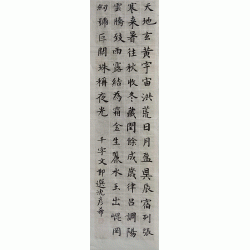 天地玄黃宇宙洪荒日月盈昃辰宿列張
寒來暑往秋收冬藏閏餘成歲律呂調陽
雲騰致雨露結為霜金生麗水玉出崐岡
劍號巨闕珠稱夜光
千字文